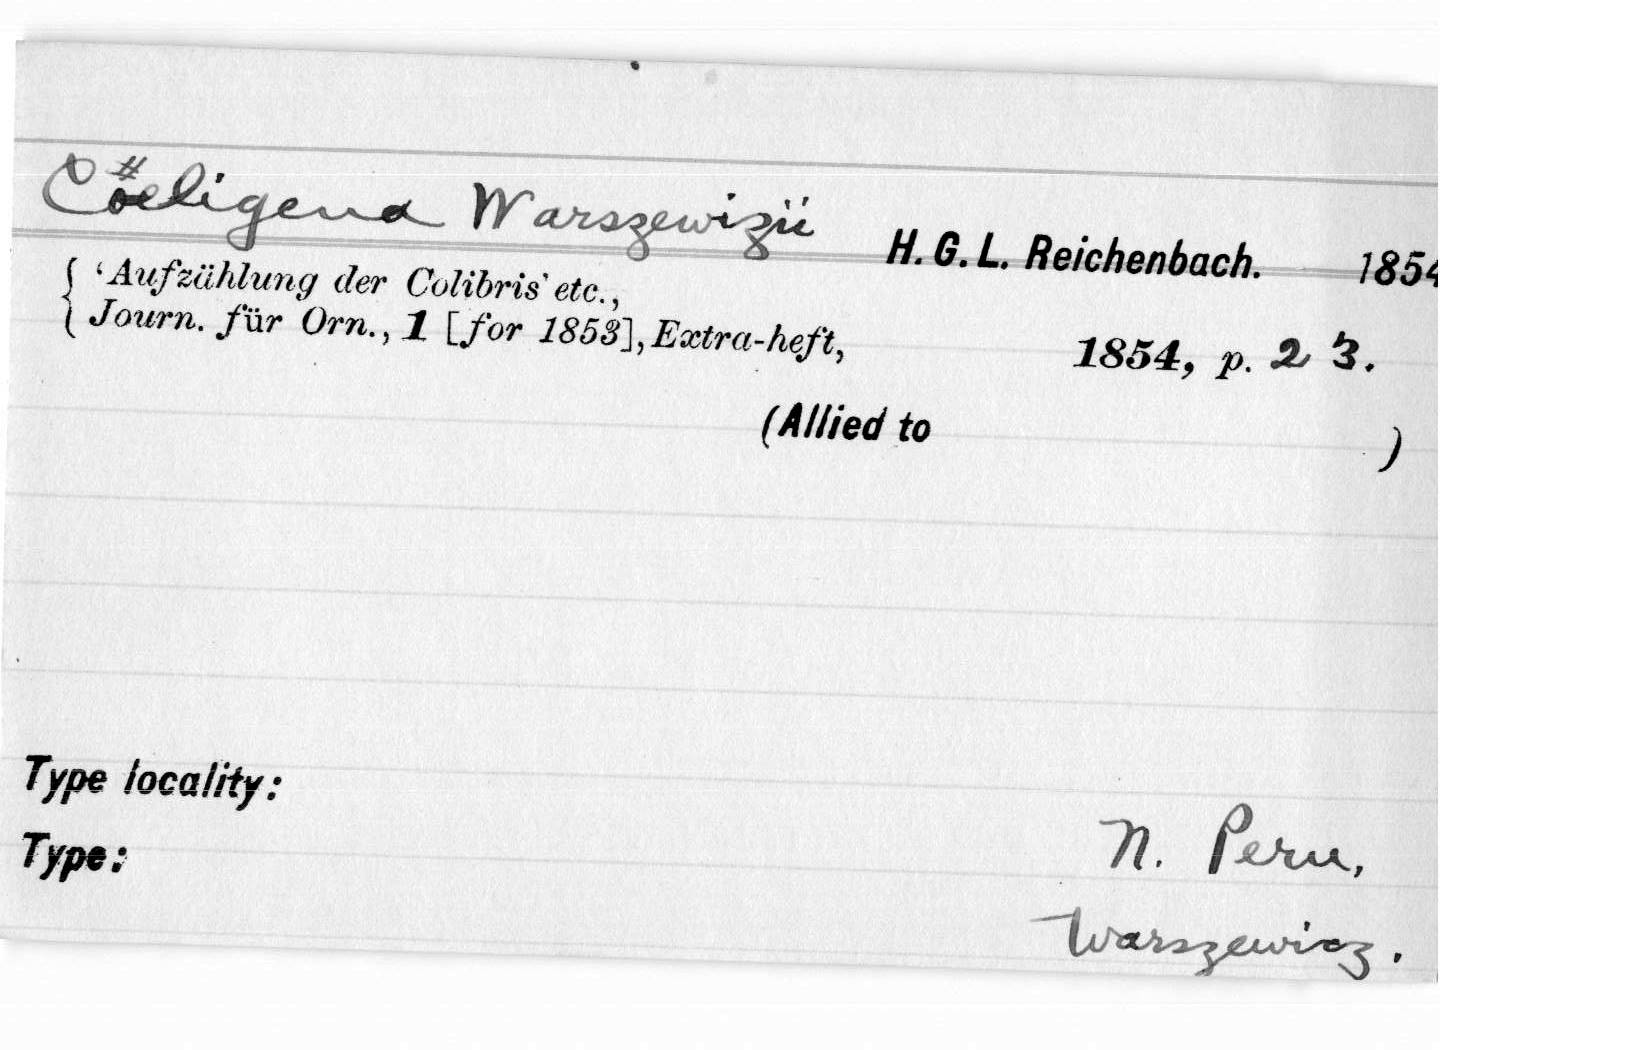 Cöeligena Warszewizii
H. G. L. Reichenbach. 1854
'Aufzählung der Colibris' etc.,
Journ. für Orn., 1 [for 1853], Extra-heft, 1854, p. 23.
(Allied to )
Type locality:
Type:
N. Peru,
Warszewicz.